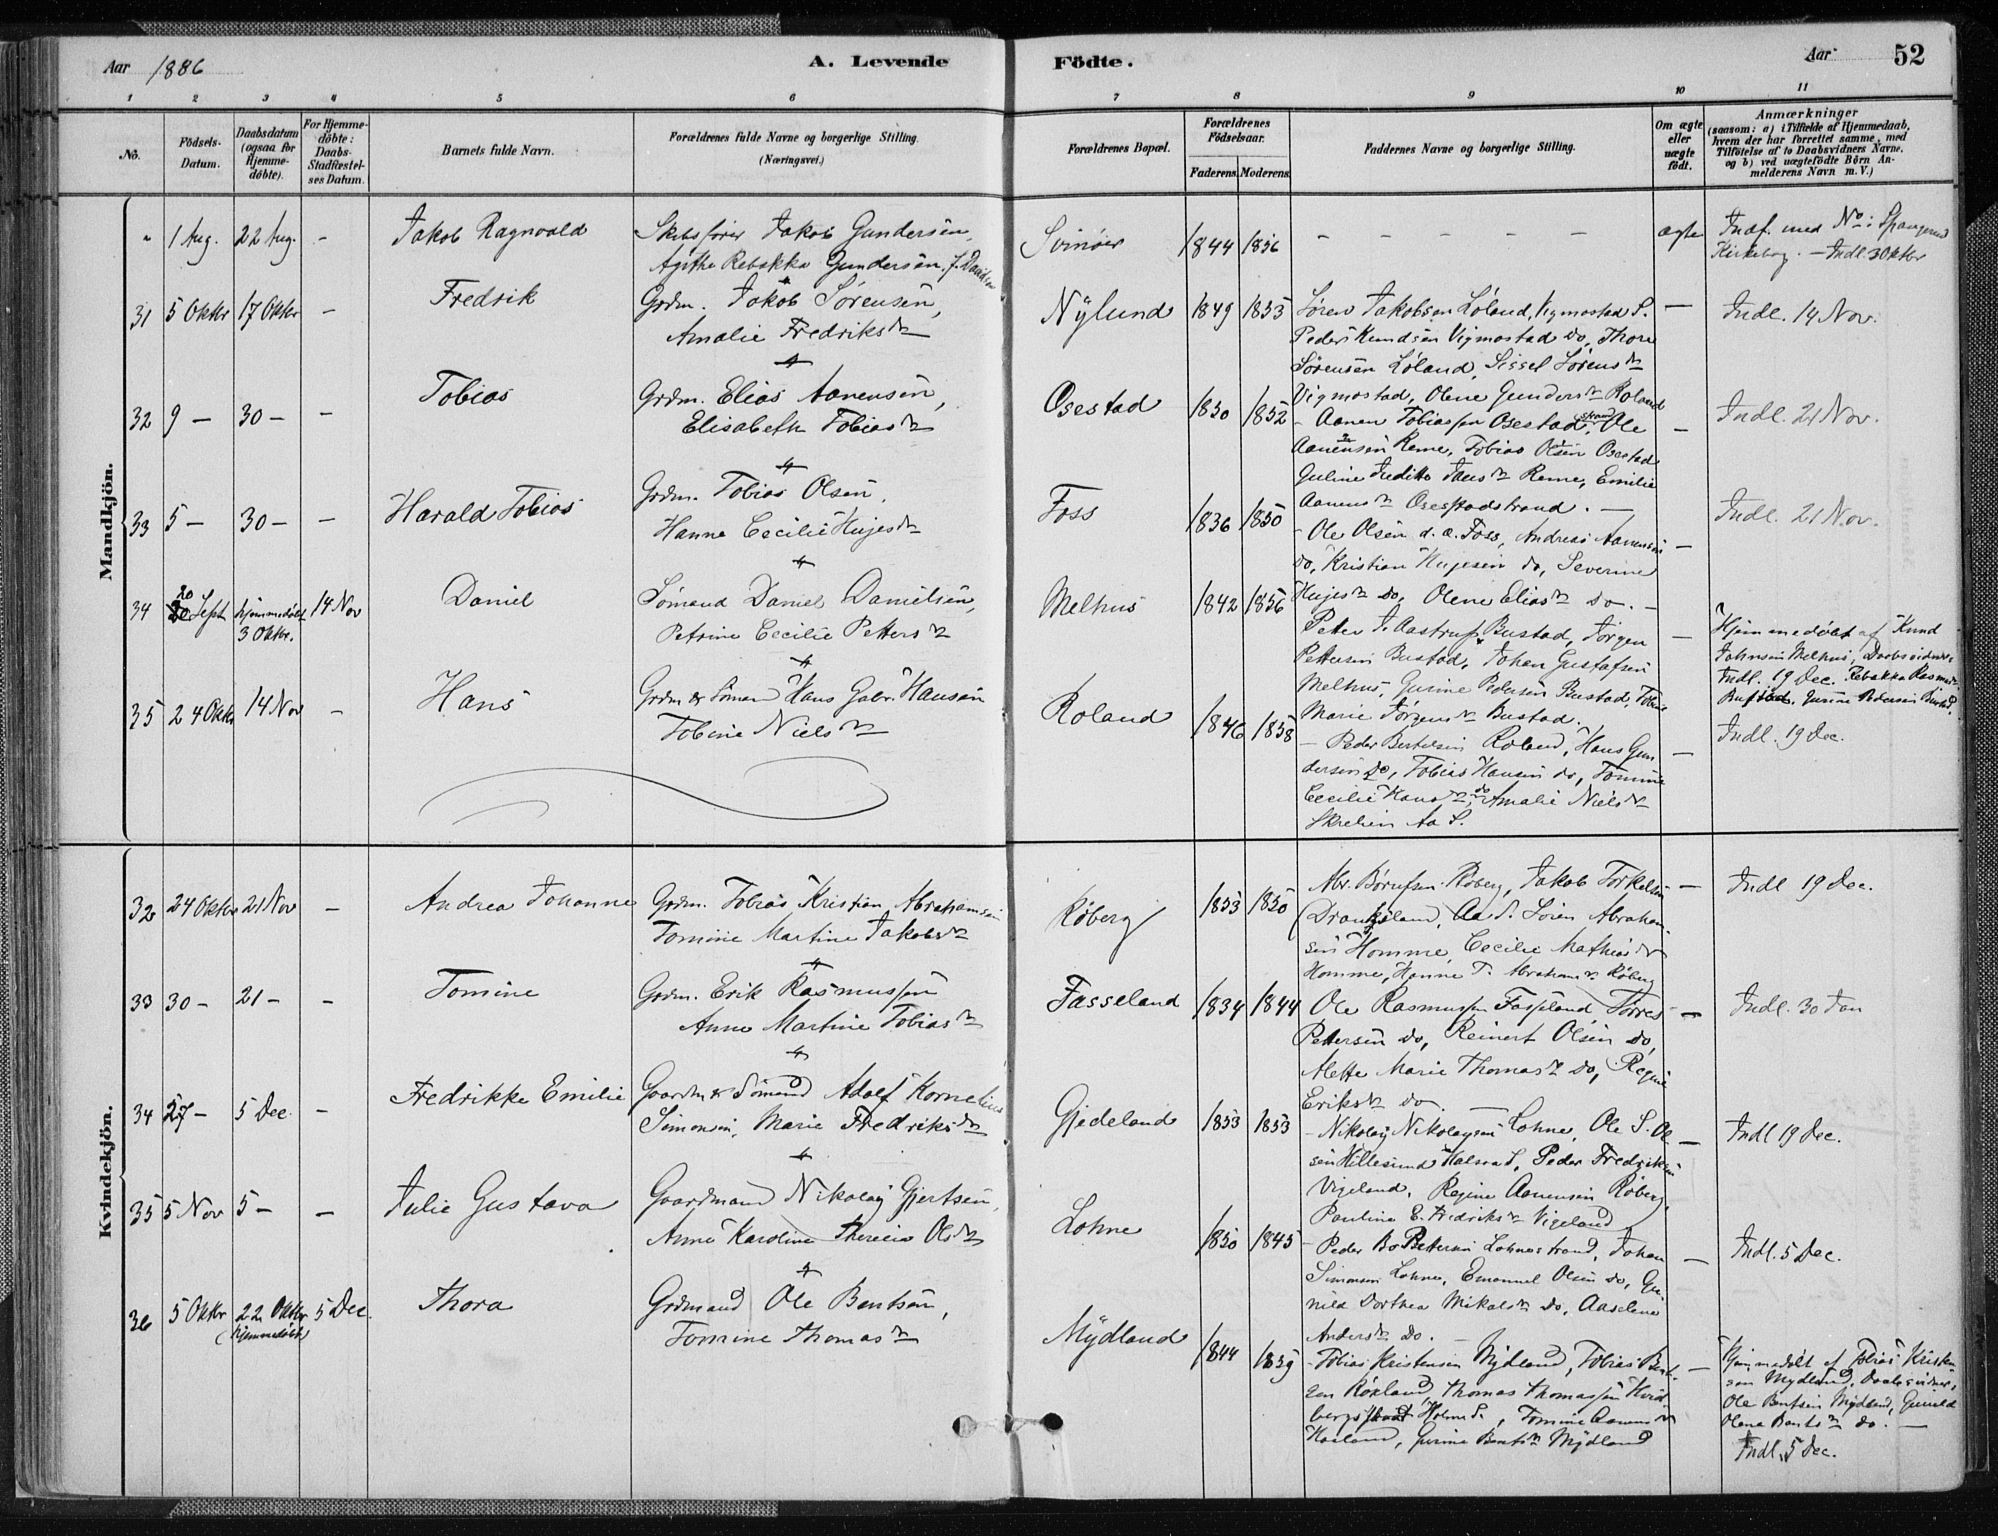 Aar 1886
A. Levende Födte.
Aar
52
1 2 3 4 5 6 7 8 9 10 11
No.
Födsels-Datum.
Daabsdatum (ogsaa for Hjemme-döbte).
For Hjemme-döbte: Daabs-Stadfæstel-ses Datum.
Barnets fulde Navn.
Forældrenes fulde Navne og borgerlige Stilling. (Næringsvei.)
Forældrenes Bopæl.
Forældrenes Födselsaar.
Faderens. Moderens.
Faddernes Navne og borgerlige Stilling.
Om ægte eller uægte födt.
Anmærkninger
(saasom: a) i Tilfælde af Hjemmedaab, hvem der har forrettet samme, med Tilföielse af to Daabsvidners Navne. og b) ved uægtefödte Börn An-melderens Navn m. V.)
Mandkjön.
" 1 Aug. 22 Aug. - Jakob Ragnvald
Skibsfører Jakob Gundersen,
Agithe Rebekka Gundersen, f. Davidsen
Svinøer 1844 1856 - - - - - ægte
Indf. med No: Spangereid
Kirkebog. - Indl. 3 Oktbr
31 5 Oktbr 17 Oktbr - Fredrik
Grdm. Jakob Sørensen,
Amalie Fredriksdr
Nÿlund 1849 1853
Søren Jakobsen Løland, Vigmostad S.
Peder Knudsen Vigmostad do, Thore
Sørensen Løland, Sissel Sørensdr
Vigmostad, Olene Gundersdr Roland
- Indl. 14 Nov.
32 9 - 30 - - Tobias
Grdm. Elias Aanensen,
Elisabeth Tobiasdr
Osestad 1850 1852
- Aanen Tobiassen Osestadstrand, Ole
Aanensen Reme, Tobias Olsen Osestad
Guline Judithe Jansdr Reme, Emilie
Aanensdr Osestadstrand. -
- Indl. 21 Nov.
33 5 - 30 - - Harald Tobias
Grdm. Tobias Olsen,
Hanne Cecilie Heijesdr
Foss 1836 1850
- Ole Olsen d. æ. Foss, Andreas Aanensen
do, Kristian Heijesen do, Severine
Heijesdr do, Olene Eliasdr do. -
- Indl. 21 Nov.
34 20 Sept hjemmedøbt 3 Oktbr. 14 Nov Daniel
Sømand Daniel Danielsen,
Petrine Cecilie Pettersdr
Melhus 1842 1856
Peter J. Aastrup Bustad, Jørgen
Pettersen Bustad, Johan Gustafsen
Melhus, Gurine Pedersen Bustad, Tobine
Marie Jørgensdr Bustad.
- Hjemmedøbt af Knud
Johnsen Melhus, Daabsvidner,
Indl. 19 Dec. Rebekka Rasmusdr
Bustad, Gurine Pedersen Bustad.
35 24 Oktbr 14 Nov - Hans
Grdm & Sømand Hans Gabr. Hansen
Tobine Nielsdr
Roland 1846 1858
- Peder Bertelsen Roland, Hans Gun
dersen do, Tobias Hansen do, Tomine
Cecilie Hansdr do, Amalie Nielsdr
Skrelien Aa S.
- Indl. 19 Dec.
Kvindekjön.
32 24 Oktbr 21 Nov - Andrea Johanne
Grdm. Tobias Kristian Abrahamsen
Tomine Martine Jakobsdr
Røberg 1853 1850
Abr. Børufsen Røberg, Jakob Torkelsen
Drangsland, Aa S. Søren Abraham
sen Homme, Cecilie Mathiasdr
Homme, Hanne T. Abrahamsdr Røberg
- Indl 19 Dec.
33 30 - 21 - - Tomine
Grdm. Erik Rasmussen
Anne Martine Tobiasdr
Fasseland 1834 1844
Ole Rasmussen Fasseland Torres
Pettersen do, Reinert Olsen do,
Alette Marie Thomasdr do, Regine
Eriksdr do. -
- Indl. 30 Jan
34 27 - 5 Dec. - Fredrikke Emilie
Gaardm & Sømand Adolf Kornelius
Simonsen, Marie Fredriksdr
Gjedeland 1853 1853
- Nikolaÿ Nikolaysen Lohne, Ole S. Ol
sen Hillesund Halsaa S, Peder Fredriksen
Vigeland, Regine Aanensen Røberg,
Pauline E. Fredriksdr Vigeland
- Indl 19 Dec.
35 5 Nov 5 - - Julie Gustava
Gaardmand Nikolaÿ Gjertsen,
Anne Karoline Theresia Olsdr
Lohne 1850 1845
- Peder Bo Pettersen Lohnestrand, Johan
Simonsen Lohne, Emanuel Olsen do, Gu
nild Dorthea Mikalsdr do, Aaselene
Andersdr do. -
- Indl. 5 Dec.
36 5 Oktbr 22 Oktbr (hjemmedøbt) 5 Dec. Thora
Grdmand Ole Bentsen,
Tomine Thomasdr
Mÿdland 1844 1859
- Tobias Kristensen Mÿdland, Tobias Bent
sen Røxland, Thomas Thomassen Kvid
bergstrand Holme S., Tomine Aanensdr
Haaland, Gurine Bentsdr Mÿdland
- Hjemmedøbt af Tobias Kristen
sen Mydland, Daabsvidner,
Ole Bentsen Mydland, Gunild
Olene Bentsdr do. -
Indl. 5 Dec.